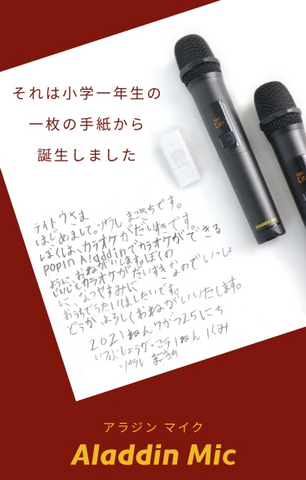 それは小学一年生の
一枚の手紙から
誕生しました
はじめまして。
ぼくは、カラオケがだいすきです。
popIn Aladdinでカラオケができる
ように、おねがいします。ぼくの
カラオケがだいすきなのでいっしょ
に、なつやすみに
おうちでうたいくらしたいです。
どうかよろしくおねがいいたします。
2021ねん7がつ25にち
いちねん1くみ
Aladdin Mic
アラジン マイク
Aladdin Mic